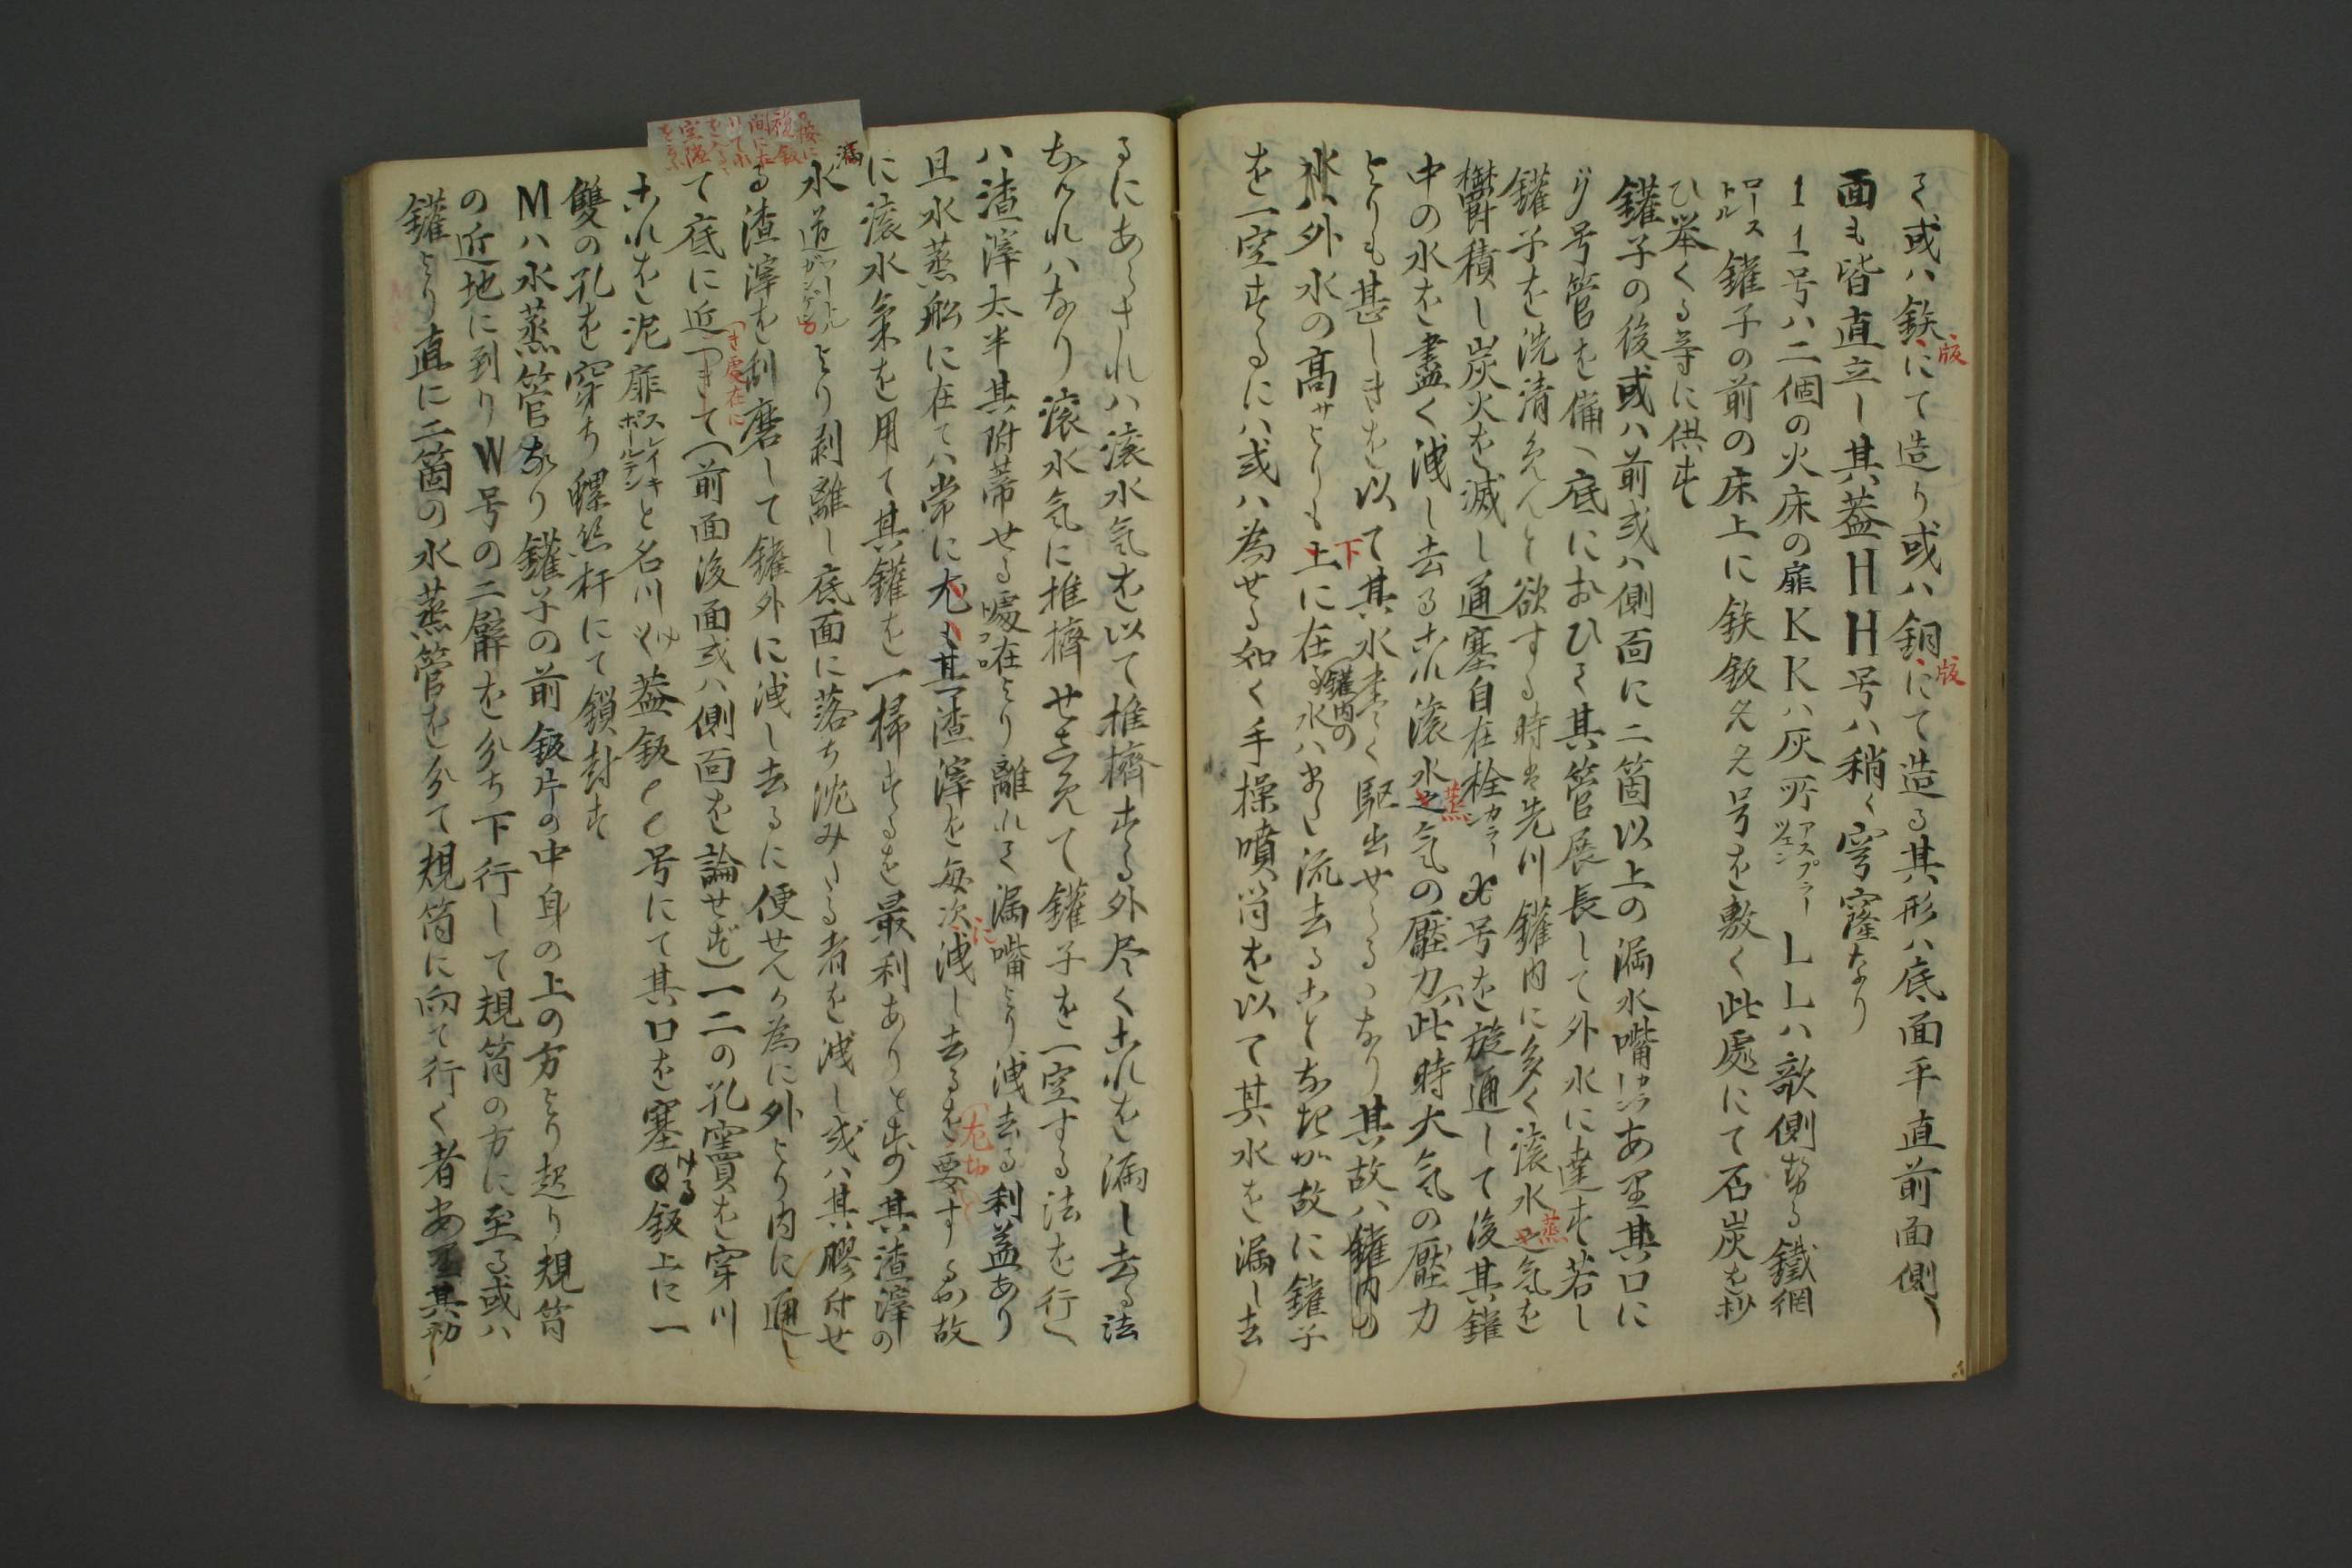 て或ハ鉄版にて造り或ハ銅版にて造る其形ハ底面平直前面側
面も皆直立し其蓋HH号ハ稍く穹窿なり
II号ハ二個の火床の扉KKハ灰所アスプラーツェン LLハ欹側せる鐵網
ローストル 鑵子の前の床上に鉄鈑号を敷く此處にて石炭を抄
ひ挙くる等に供す
鑵子の後或ハ前或ハ側面に二箇以上の漏水嘴あり其口に
号管を備へ底におひて其管展長して外水に達す若し
鑵子を洗清めんと欲する時は先川鑵内に多く滚水蒸気を
欝積し炭火を滅し通塞自在栓カラーン 号を旋通して後其鑵
中の水を盡く洩し去るこれ滚水蒸気の壓力ハ此時大気の壓力
よりも甚しきを以て其水盡く駆出せらるゝなり其故ハ鑵内の
水ハ外水の高サよりも下に在る鑵内の水ハ流去ることなきか故に鑵子
を一空するにハ或ハ為せる如く手操噴筒を以て其水を漏し去
るにあらされハ滚水気を以て推擠する外尽くこれを漏し去る法
なけれハなり滚水气に推擠せしめて鑵子を一空する法を行へ
ハ渣滓太半其附蒂せる處在より離れて漏嘴より洩去る利益あり
且水蒸船に在てハ常に尤も其渣滓を毎次に洩し去るを要するか故
に滚水気を用て其鑵を一掃するを最利ありとす其渣滓の
漏水道より剥離し底面に落ち沈みたる者を洩し或ハ其膠付せ
る渣滓を刮磨して鑵外に洩し去るに便せんか為に外より内に通し
て底に近き處在に(前面後面或ハ側面を論せず)一二の孔竇を穿川
これを泥扉スレイキポールテンと名川く蓋鈑ee号にて其口を塞ける鈑上に一
雙の孔を穿ち螺絲杆にて鎖封す
Mハ水蒸管なり鑵子の前鈑片の中身の上の方より起り規筒
の近地に到りW号の二解を分ち下行して規筒の方に至る或ハ
鑵より直に二箇の水蒸管を分て規筒に向て行く者あり其初